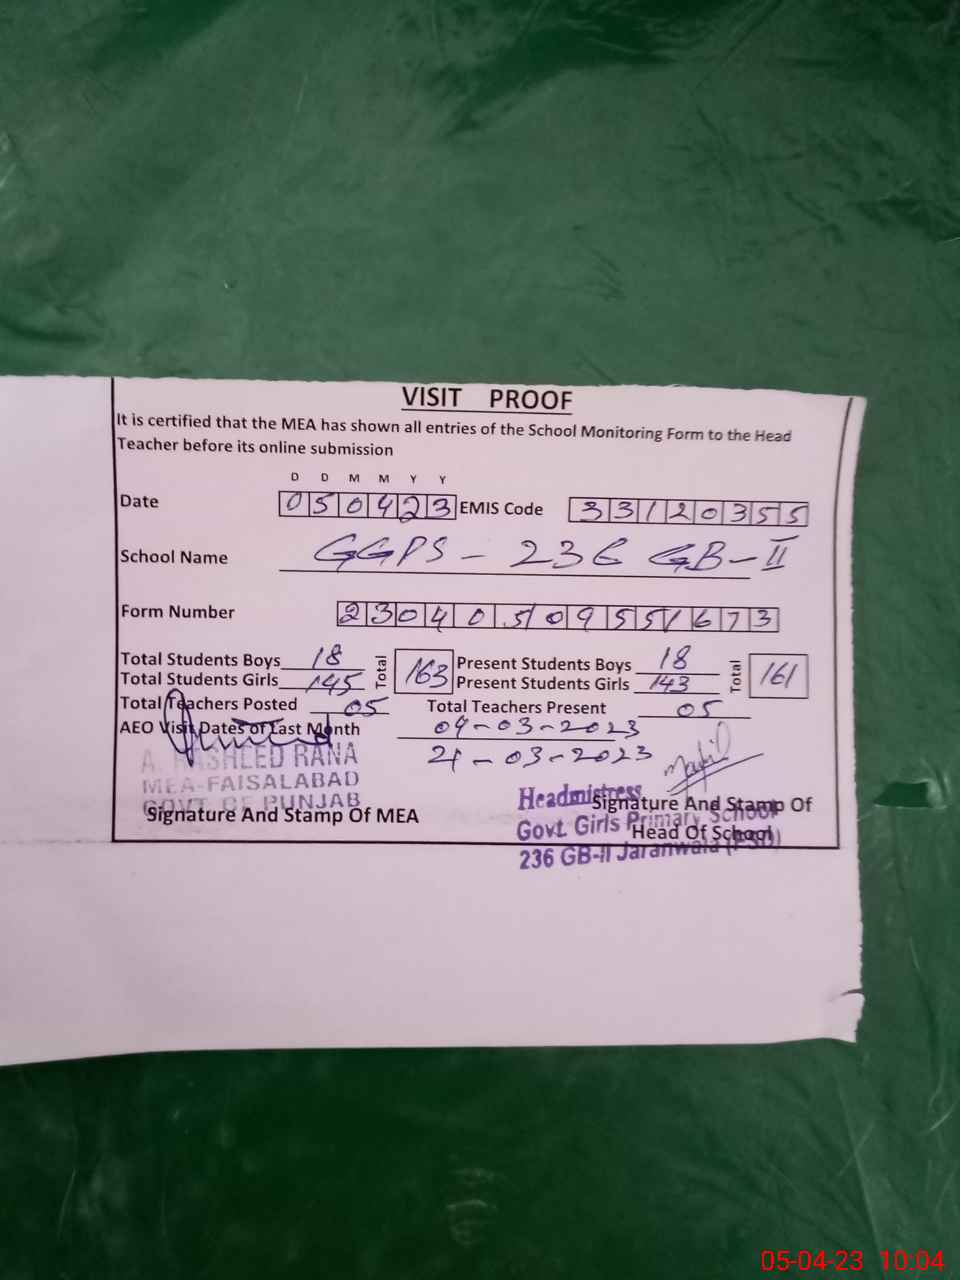 VISIT PROOF
It is certified that the MEA has shown all entries of the School Monitoring Form to the Head
Teacher before its online submission
D D M M Y Y
Date 050423 EMIS Code 33120355
School Name GGPS - 236 GB-II
Form Number 230405095551673
Total Students Boys 18 Total 163 Present Students Boys 18 Total 161
Total Students Girls 145 Present Students Girls 143
Total Teachers Posted 05 Total Teachers Present 05
AEO Visit Dates of Last Month 09-03-2023
21-03-2023
A. RASHEED RANA
MEA-FAISALABAD
GOVT. OF PUNJAB
Signature And Stamp Of MEA
Headmistress
Govt. Girls Primary School
236 GB-II Jaranwala (FSD)
Signature And Stamp Of
Head Of School
05-04-23 10:04